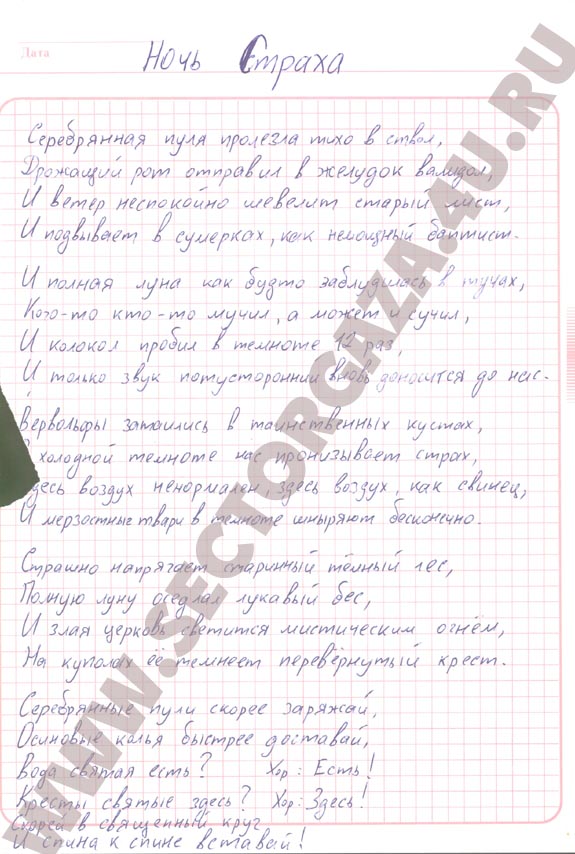 Дата
Ночь Страха
Серебрянная пуля пролезла тихо в ствол,
Дрожащий рот отправил в желудок валидол,
И ветер неспокойно шевелит старый лист,
И подвывает в сумерках, как немощный баптист.
И полная луна как будто заблудилась в тучах,
Кого-то кто-то мучил, а может и сучил,
И колокол пробил в темноте 12 раз,
И только звук потусторонний вновь доносится до нас.
Вервольфы затаились в таинственных кустах,
холодной темноте нас пронизывает страх,
десь воздух ненормален, здесь воздух, как свинец,
И мерзостные твари в темноте шныряют бесконечно.
Страшно напрягает старинный тёмный лес,
Полную луну оседлал лукавый бес,
И злая церковь светится мистическим огнём,
На куполах её темнеет перевёрнутый крест.
Серебрянные пули скорее заряжай,
Осиновые колья быстрее доставай,
Вода святая есть? Хор: Есть!
Кресты святые здесь? Хор: Здесь!
Скорей в священный круг
И спина к спине вставай!
WWW.SECTORGAZA.4U.RU